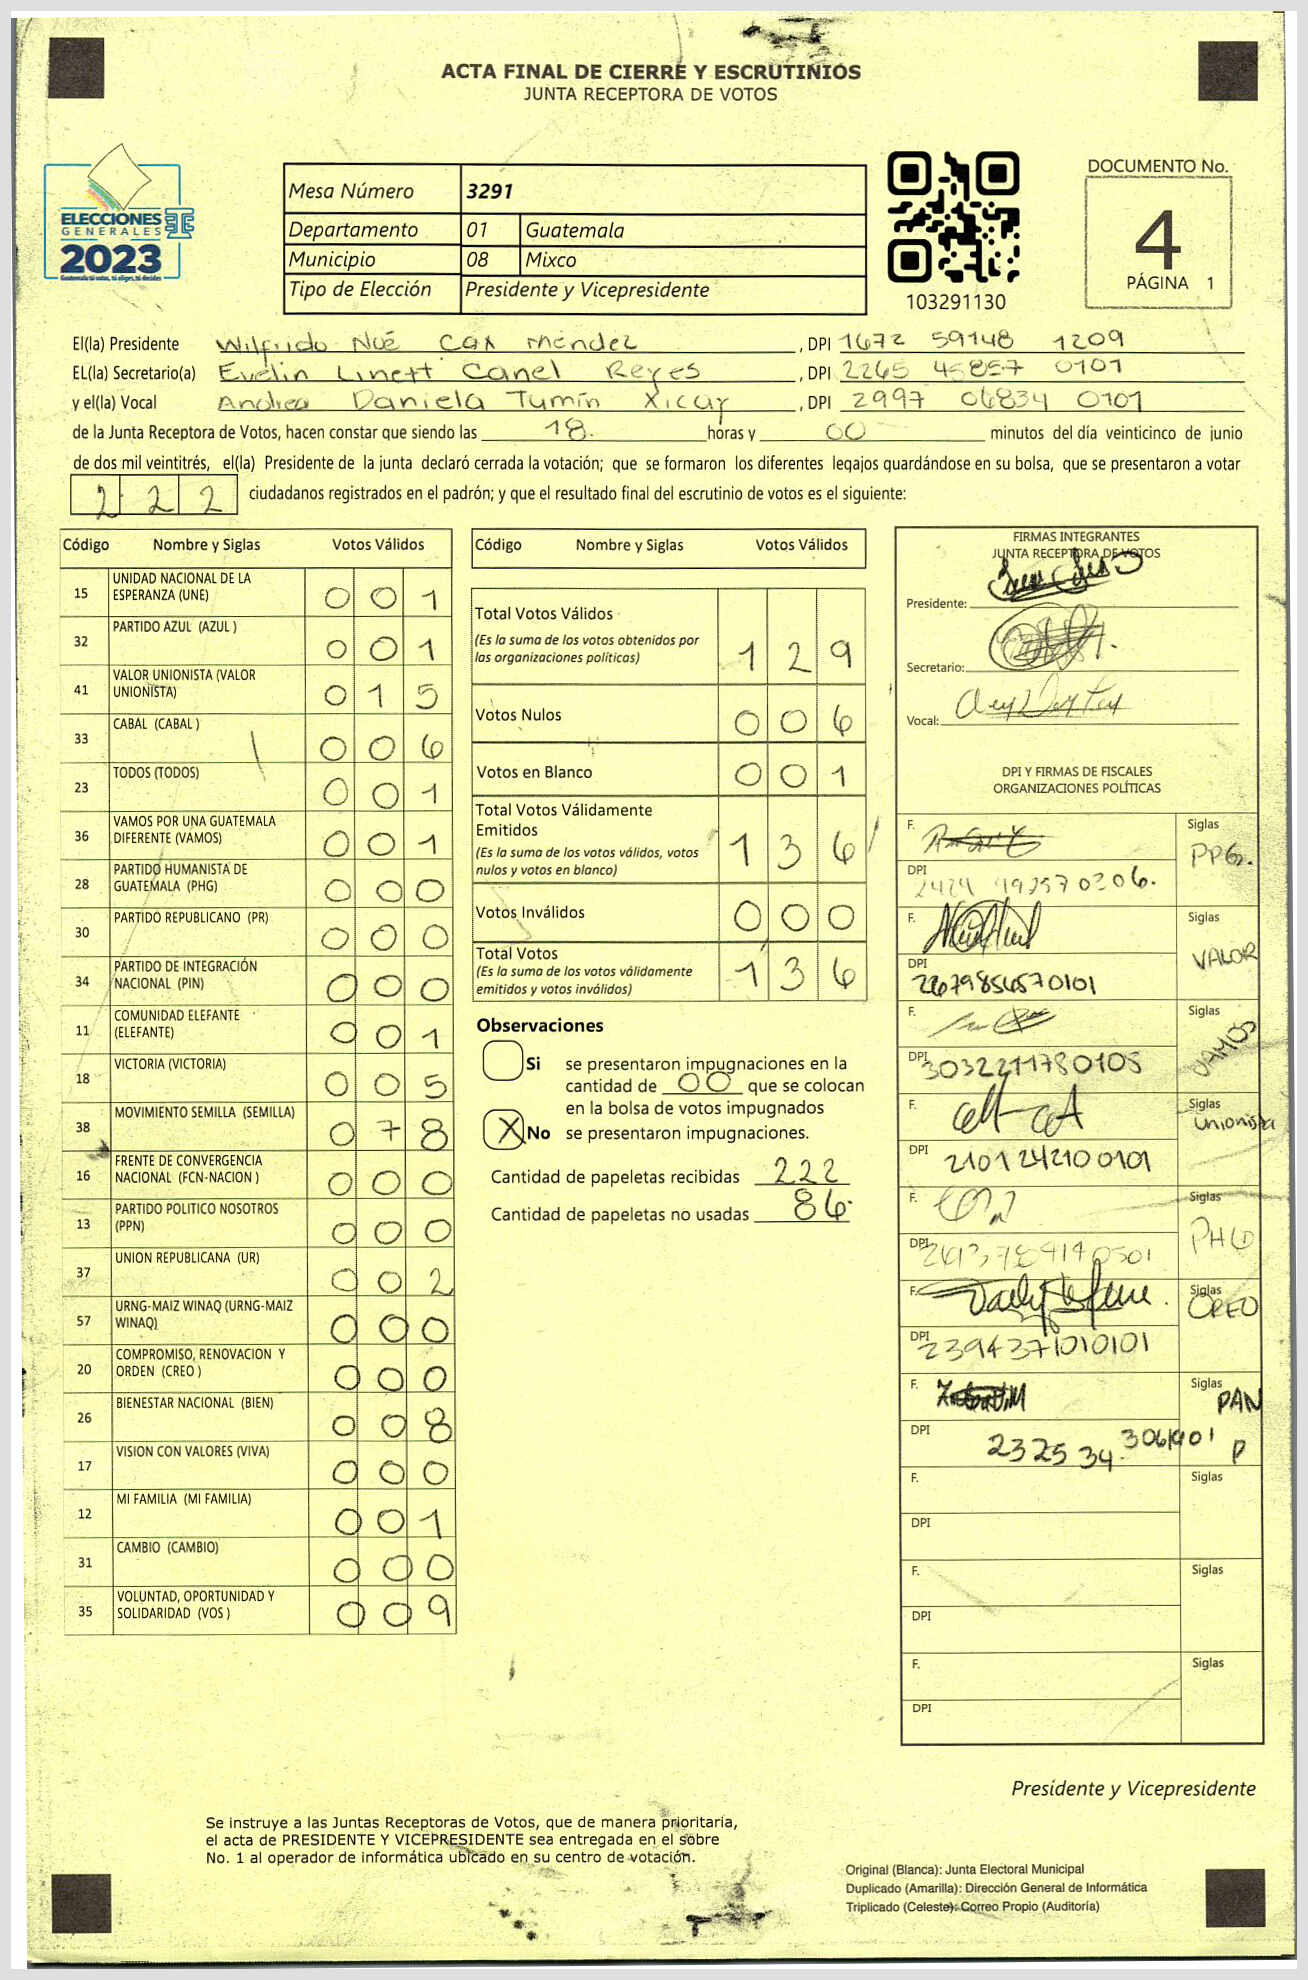 ACTA FINAL DE CIERRE Y ESCRUTINIOS
JUNTA RECEPTORA DE VOTOS
ELECCIONES
GENERALES
2023
Guatemala tú votas, tú eliges, tú decides
Mesa Número 3291
Departamento 01 Guatemala
Municipio 08 Mixco
Tipo de Elección Presidente y Vicepresidente
103291130
DOCUMENTO No.
4
PÁGINA 1
El(la) Presidente Wilfrido Noé Cax Méndez, DPI 1672 59148 1209
EL(la) Secretario(a) Evelin Linett Canel Reyes, DPI 2265 45857 0101
y el(la) Vocal Andrea Daniela Tumín Xicay, DPI 2997 06834 0101
de la Junta Receptora de Votos, hacen constar que siendo las 18. horas y 00 minutos del día veinticinco de junio
de dos mil veintitrés, el(la) Presidente de la junta declaró cerrada la votación; que se formaron los diferentes legajos guardándose en su bolsa, que se presentaron a votar
222 ciudadanos registrados en el padrón; y que el resultado final del escrutinio de votos es el siguiente:
Código Nombre y Siglas Votos Válidos
15 UNIDAD NACIONAL DE LA ESPERANZA (UNE) 001
32 PARTIDO AZUL (AZUL ) 001
41 VALOR UNIONISTA (VALOR UNIONISTA) 015
33 CABAL (CABAL ) 006
23 TODOS (TODOS) 001
36 VAMOS POR UNA GUATEMALA DIFERENTE (VAMOS) 001
28 PARTIDO HUMANISTA DE GUATEMALA (PHG) 000
30 PARTIDO REPUBLICANO (PR) 000
34 PARTIDO DE INTEGRACIÓN NACIONAL (PIN) 000
11 COMUNIDAD ELEFANTE (ELEFANTE) 001
18 VICTORIA (VICTORIA) 005
38 MOVIMIENTO SEMILLA (SEMILLA) 078
16 FRENTE DE CONVERGENCIA NACIONAL (FCN-NACION ) 000
13 PARTIDO POLITICO NOSOTROS (PPN) 000
37 UNION REPUBLICANA (UR) 002
57 URNG-MAIZ WINAQ (URNG-MAIZ WINAQ) 000
20 COMPROMISO, RENOVACION Y ORDEN (CREO ) 000
26 BIENESTAR NACIONAL (BIEN) 008
17 VISION CON VALORES (VIVA) 000
12 MI FAMILIA (MI FAMILIA) 001
31 CAMBIO (CAMBIO) 000
35 VOLUNTAD, OPORTUNIDAD Y SOLIDARIDAD (VOS ) 009
Código Nombre y Siglas Votos Válidos
Total Votos Válidos
(Es la suma de los votos obtenidos por las organizaciones políticas) 129
Votos Nulos 006
Votos en Blanco 001
Total Votos Válidamente Emitidos
(Es la suma de los votos válidos, votos nulos y votos en blanco) 136
Votos Inválidos 000
Total Votos
(Es la suma de los votos válidamente emitidos y votos inválidos) 136
Observaciones
Si se presentaron impugnaciones en la
cantidad de 00 que se colocan
en la bolsa de votos impugnados
X No se presentaron impugnaciones.
Cantidad de papeletas recibidas 222
Cantidad de papeletas no usadas 86.
FIRMAS INTEGRANTES
JUNTA RECEPTORA DE VOTOS
Presidente:
Secretario:
Vocal:
DPI Y FIRMAS DE FISCALES
ORGANIZACIONES POLÍTICAS
F. Siglas PPG.
DPI
F. Siglas VALOR
DPI 2679856570101
F. Siglas VAMOS
DPI 3032211780105
F. Siglas Unionista
DPI 2101242100101
F. Siglas
DPI
F. Siglas CREO
DPI 2394371010101
F. Siglas PAN
DPI P
F. Siglas
DPI
F. Siglas
DPI
F. Siglas
DPI
Presidente y Vicepresidente
Se instruye a las Juntas Receptoras de Votos, que de manera prioritaria,
el acta de PRESIDENTE Y VICEPRESIDENTE sea entregada en el sobre
No. 1 al operador de informática ubicado en su centro de votación.
Original (Blanca): Junta Electoral Municipal
Duplicado (Amarilla): Dirección General de Informática
Triplicado (Celeste): Correo Propio (Auditoría)